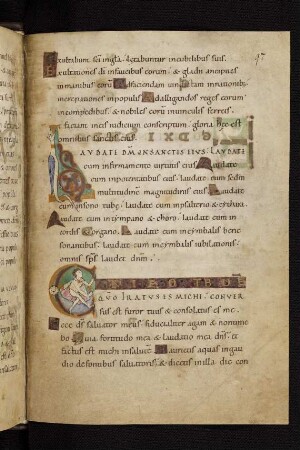 Exultabunt sci inglã. lętabuntur incubilibus suis.
Exultationes di infaucibus eorum. & gladii ancipites
inmanibus eorũ. Adfaciendam uindictam innationib;
increpationes inpopulis. Adalligandos reges eorum
incompedibus. & nobiles eorũ inmanicis ferreis.
Ut faciant ineis iudicium conscriptum. gloria hęc est
omnibus sanctis eius.
LAUDATE DÑM INSANCTIS EIUS. LAUDATE
eum infirmamento uirtutis eius. Laudate
eum inpotentatibus eius. laudate eum sedm
multitudinẽ magnitudinis eius. Laudate
eum insono tubę. laudate eum inpsalterio & cithara.
Laudate eum intympano & choro. laudate eum in
cordis & organo. Laudate eum incymbalis bene
sonantibus. laudate eum incymbalis iubilationis.
omnis sps laudet dnm.
QUO IRATUS ES MICHI. CONVER
sus est furor tuus & consolatus es me.
Ecce ds saluator meus. fiducialiter agam & nontime
bo. Quia fortitudo mea & laudatio mea dñs. &
factus est michi insalutẽ. Haurietis aquas ingau
dio defontibus saluatoris. & dicetis inilla die con